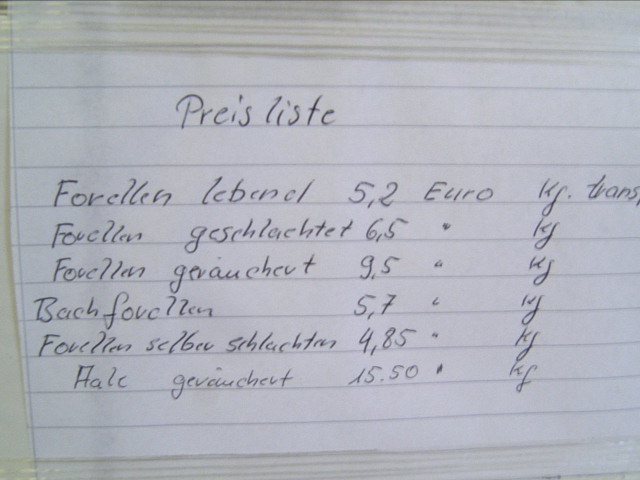 Preisliste
Forellen lebend 5,2 Euro kg. trans,
Forellen geschlachtet 6,5 " kg
Forellen geräuchert 9,5 " kg
Bachforellen 5,7 " kg
Forellen selber schlachten 4,85 " kg
Aale geräuchert 15.50 " kg